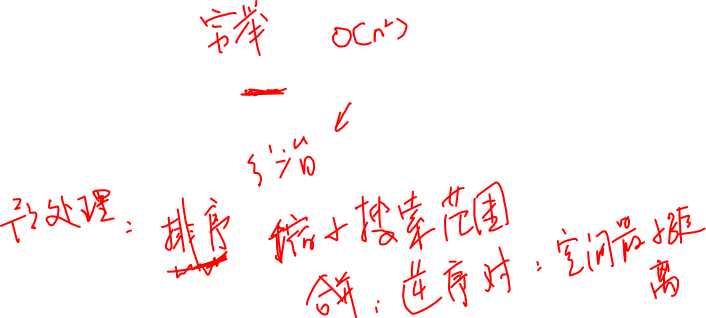 穷举 O(n²)
分治
预处理：排序 缩小搜索范围
合并：逆序对：空间最小距
离